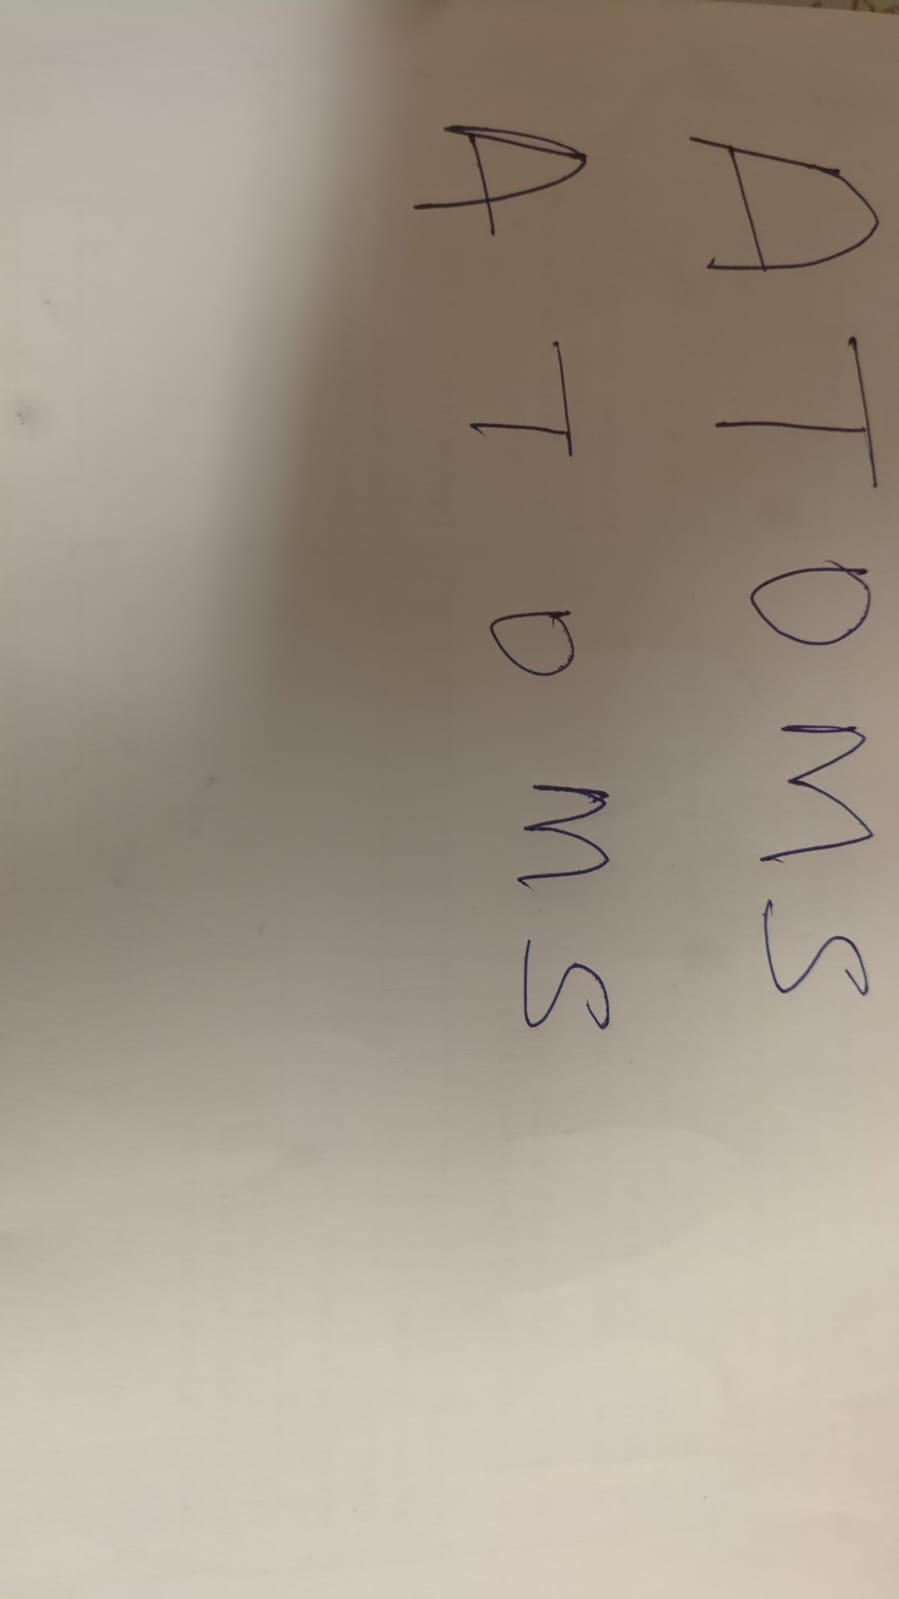 ATOMS
ATOMS